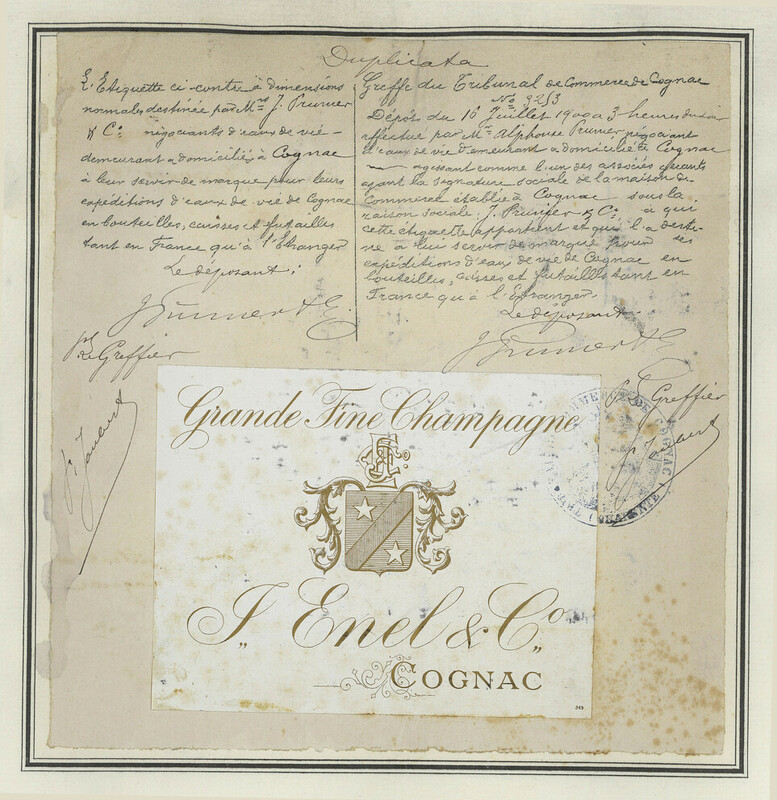 Duplicata
L'Etiquette ci-contre à dimensions
normales destinée par Mrs J. Prunier
& Cie négociants d'eaux de vie
demeurant & domiciliés à Cognac
à leur servir de marque pour leurs
expéditions d'eaux de vie de Cognac
en bouteilles, caisses et futailles
tant en France qu'à l'Etranger
Le déposant:
J Prunier & Co
pr Le Greffier
Joubert
Greffe du Tribunal de Commerce de Cognac
No 3253
Dépôt du 10 Juillet 1900 à 3 heures du soir
effectué par Mr Alphonse Prunier négociant
d'eaux de vie demeurant & domicilié à Cognac
agissant comme l'un des associés gérants
ayant la signature sociale de la maison de
Commerce établie à Cognac sous la
raison sociale: J. Prunier & Cie à qui
cette étiquette appartient et qui l'a desti-
née à lui servir de marque pour ses
expéditions d'eau de vie de Cognac en
bouteilles, caisses et futailles tant en
France qu'à l'Etranger.
Le déposant
J Prunier & Co
pr Le Greffier
Joubert
COMMERCE DE COGNAC
CHARENTE
Grande Fine Champagne
J. Enel & Co
COGNAC